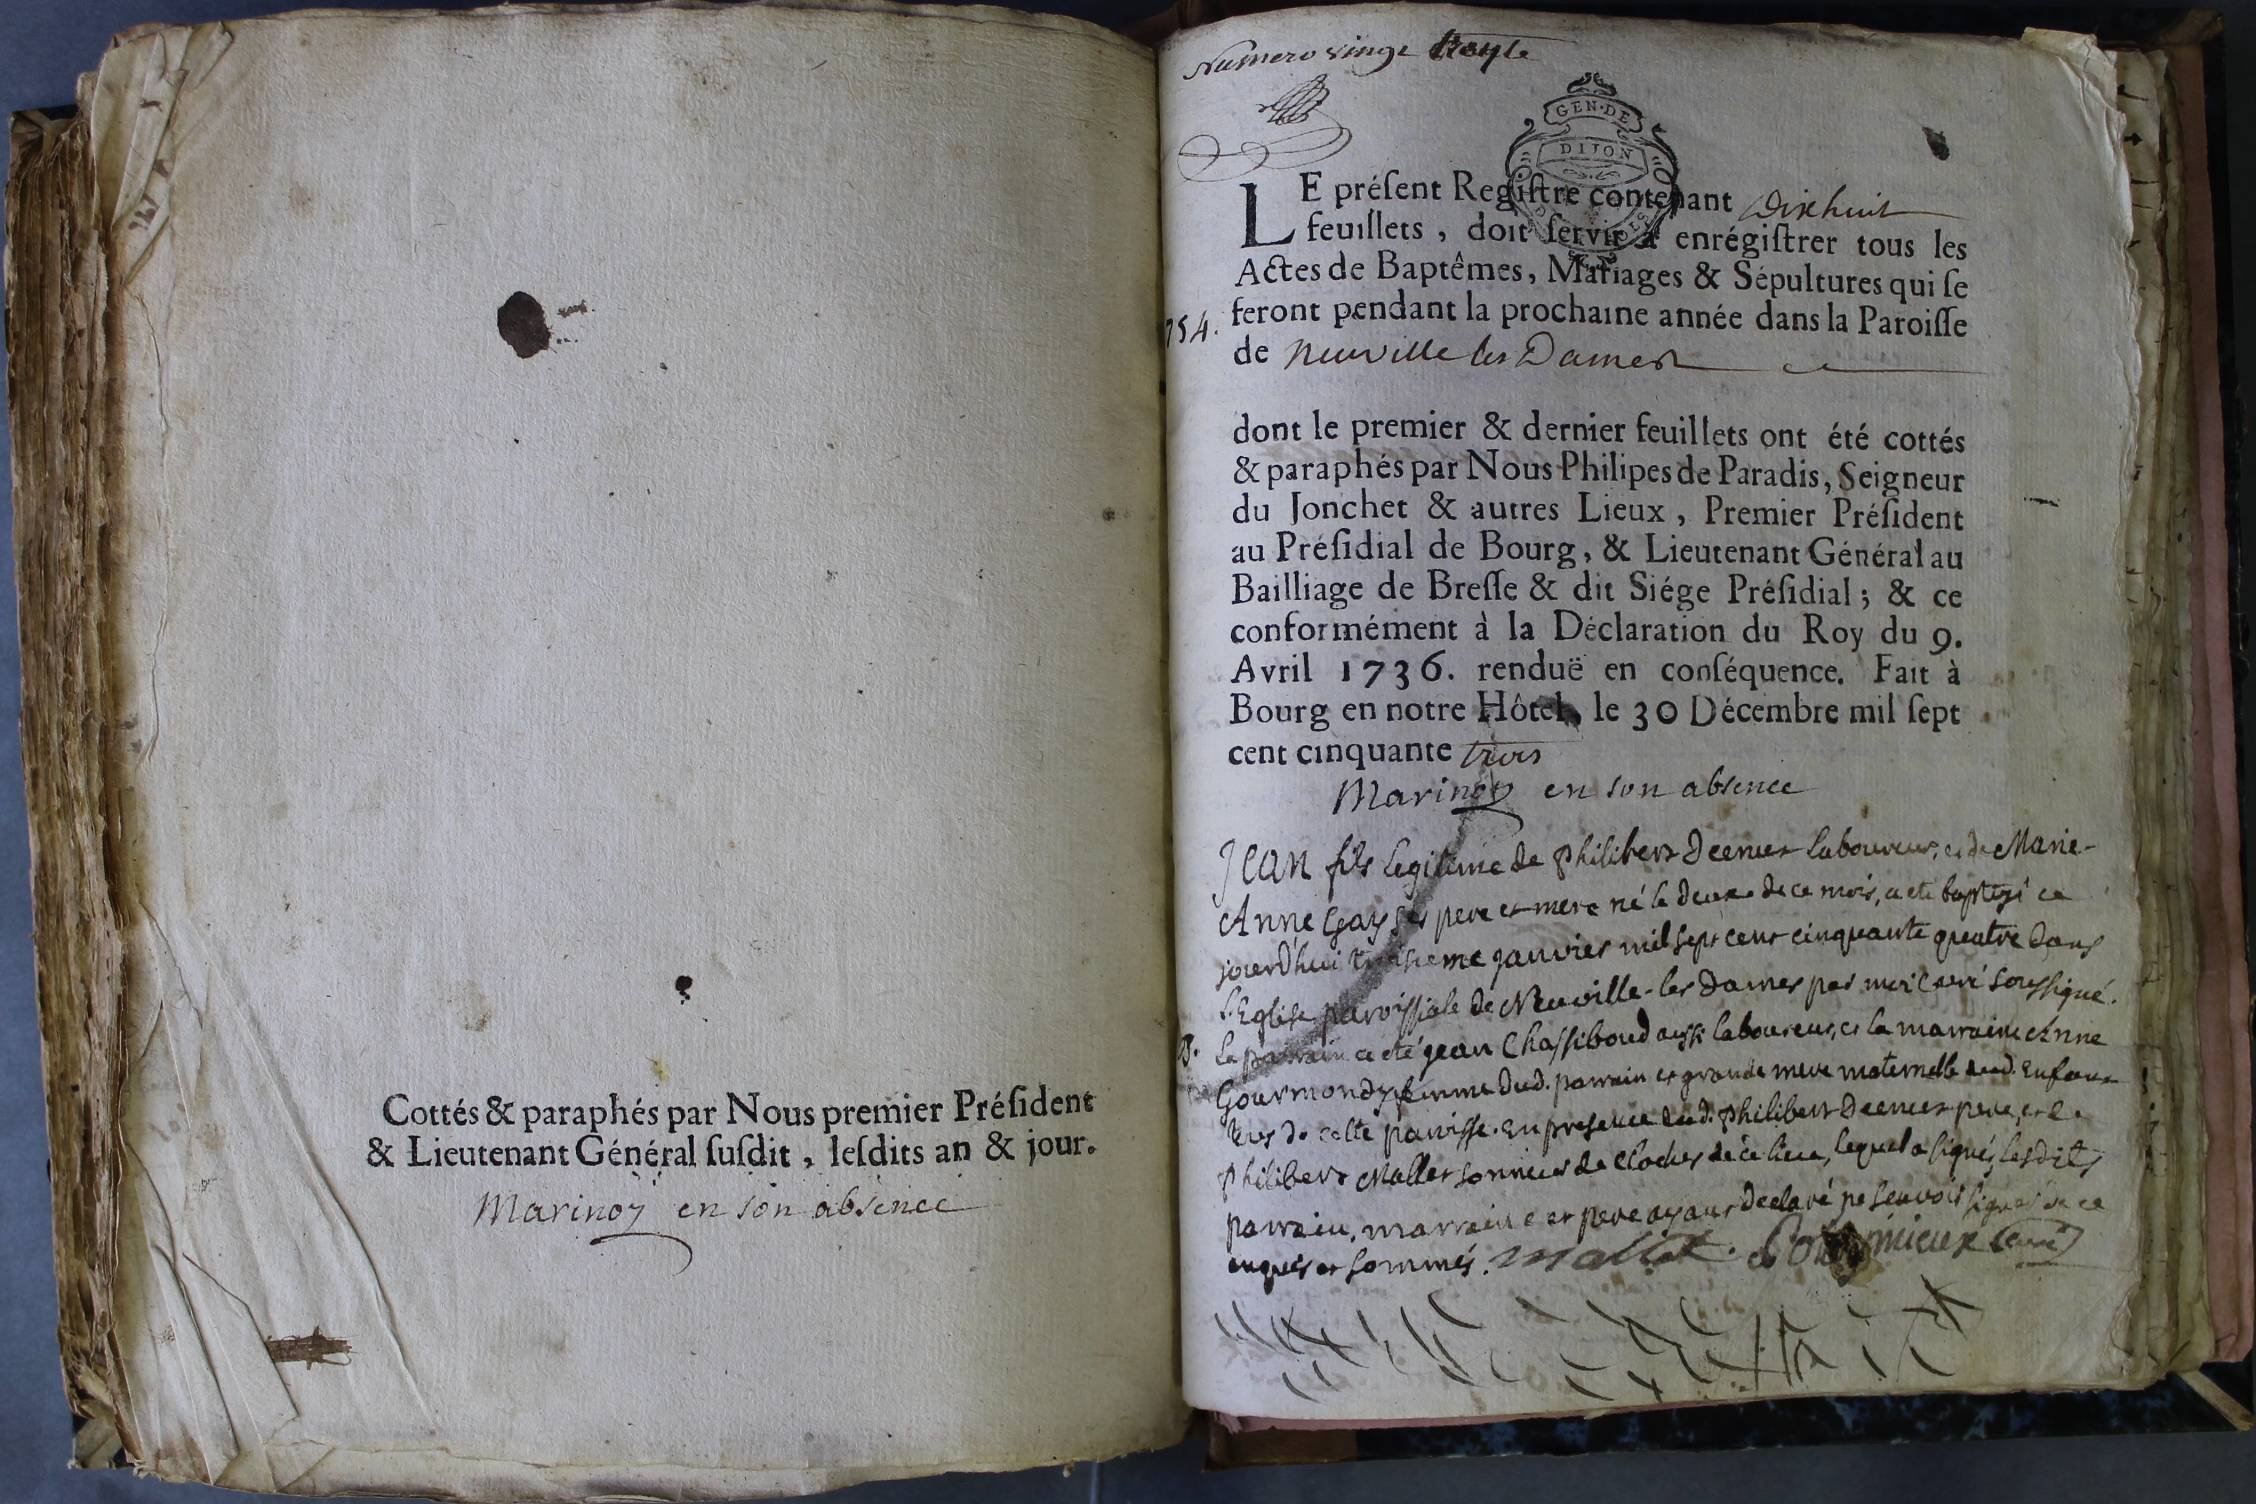 Cottés & paraphés par Nous premier Préſident
& Lieutenant Général ſuſdit, leſdits an & jour.
Marinoy en son absence
Numero vinge
GEN·DE
DIJON
LE préſent Regiſtre contenant Dixhuit
feuillets, doit ſervir à enrégiſtrer tous les
Actes de Baptêmes, Mariages & Sépultures qui ſe
feront pendant la prochaine année dans la Paroiſſe
754.
de Neuville les Dames
dont le premier & dernier feuillets ont été cottés
& paraphés par Nous Philipes de Paradis, Seigneur
du Jonchet & autres Lieux, Premier Préſident
au Préſidial de Bourg, & Lieutenant Général au
Bailliage de Breſſe & dit Siége Préſidial; & ce
conformément à la Déclaration du Roy du 9.
Avril 1736. renduë en conſéquence. Fait à
Bourg en notre Hôtel, le 30 Décembre mil ſept
cent cinquante trois
Marinoy en son absence
Jean fils legitime de Philibert laboureur, et de Marie-
Anne Gay ses pere et mere né le deux de ce mois, a ete baptizé ce
jourd'hui troisieme janvier mil sept cent cinquante quatre dans
l'Eglise paroissiale de Neuville-les Dames par moi curé soussigné.
B. Le parrain a eté jean Chassiboud aussi laboureur, et la marraine Anne
Gourmond femme dud. parrain et grande mere maternelle dud. Enfant
tous de cette paroisse. en presence dud. Philibert pere, et de
Philibert Mallet sonneur de cloches de ce lieu, lequel a signé, lesdits
parrain, marraine et pere ayant declaré ne sçavoir signer de ce
enquis et sommés. Mallet. curé